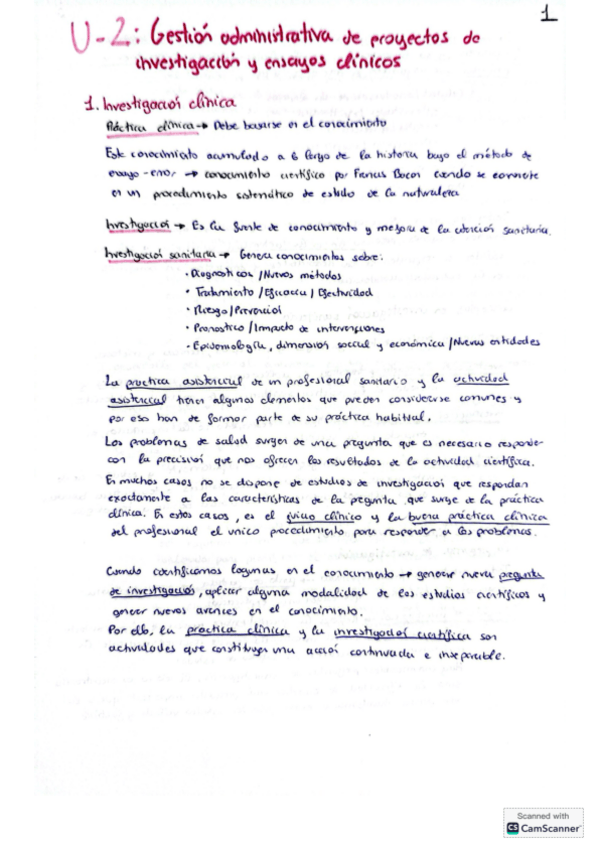 1
U-2: Gestión administrativa de proyectos de
investigación y ensayos clínicos
1. Investigación clínica
Práctica clínica → Debe basarse en el conocimiento
Este conocimiento acumulado a lo largo de la historia bajo el método de
ensayo-error → conocimiento científico por Francis Bacon cuando se convierte
en un procedimiento sistemático de estudio de la naturaleza
Investigación → Es la fuente de conocimiento y mejora de la atención sanitaria.
Investigación sanitaria → Genera conocimientos sobre:
• Diagnósticos / Nuevos métodos
• Tratamiento / Eficacia / Efectividad
• Riesgo / Prevención
• Pronóstico / Impacto de intervenciones
• Epidemiología, dimensión social y económica / Nuevas entidades
La práctica asistencial de un profesional sanitario y la actividad
asistencial tienen algunos elementos que pueden considerarse comunes y
por eso han de formar parte de su práctica habitual.
Los problemas de salud surgen de una pregunta que es necesario responder
con la precisión que nos ofrecen los resultados de la actividad científica.
En muchos casos no se dispone de estudios de investigación que respondan
exactamente a las características de la pregunta que surge de la práctica
clínica. En estos casos, es el juicio clínico y la buena práctica clínica
del profesional el único procedimiento para responder a los problemas.
Cuando identificamos lagunas en el conocimiento → generar nueva pregunta
de investigación, aplicar alguna modalidad de los estudios científicos y
generar nuevos avances en el conocimiento.
Por ello, la práctica clínica y la investigación científica son
actividades que constituyen una acción continuada e inseparable.
Scanned with
CS CamScanner